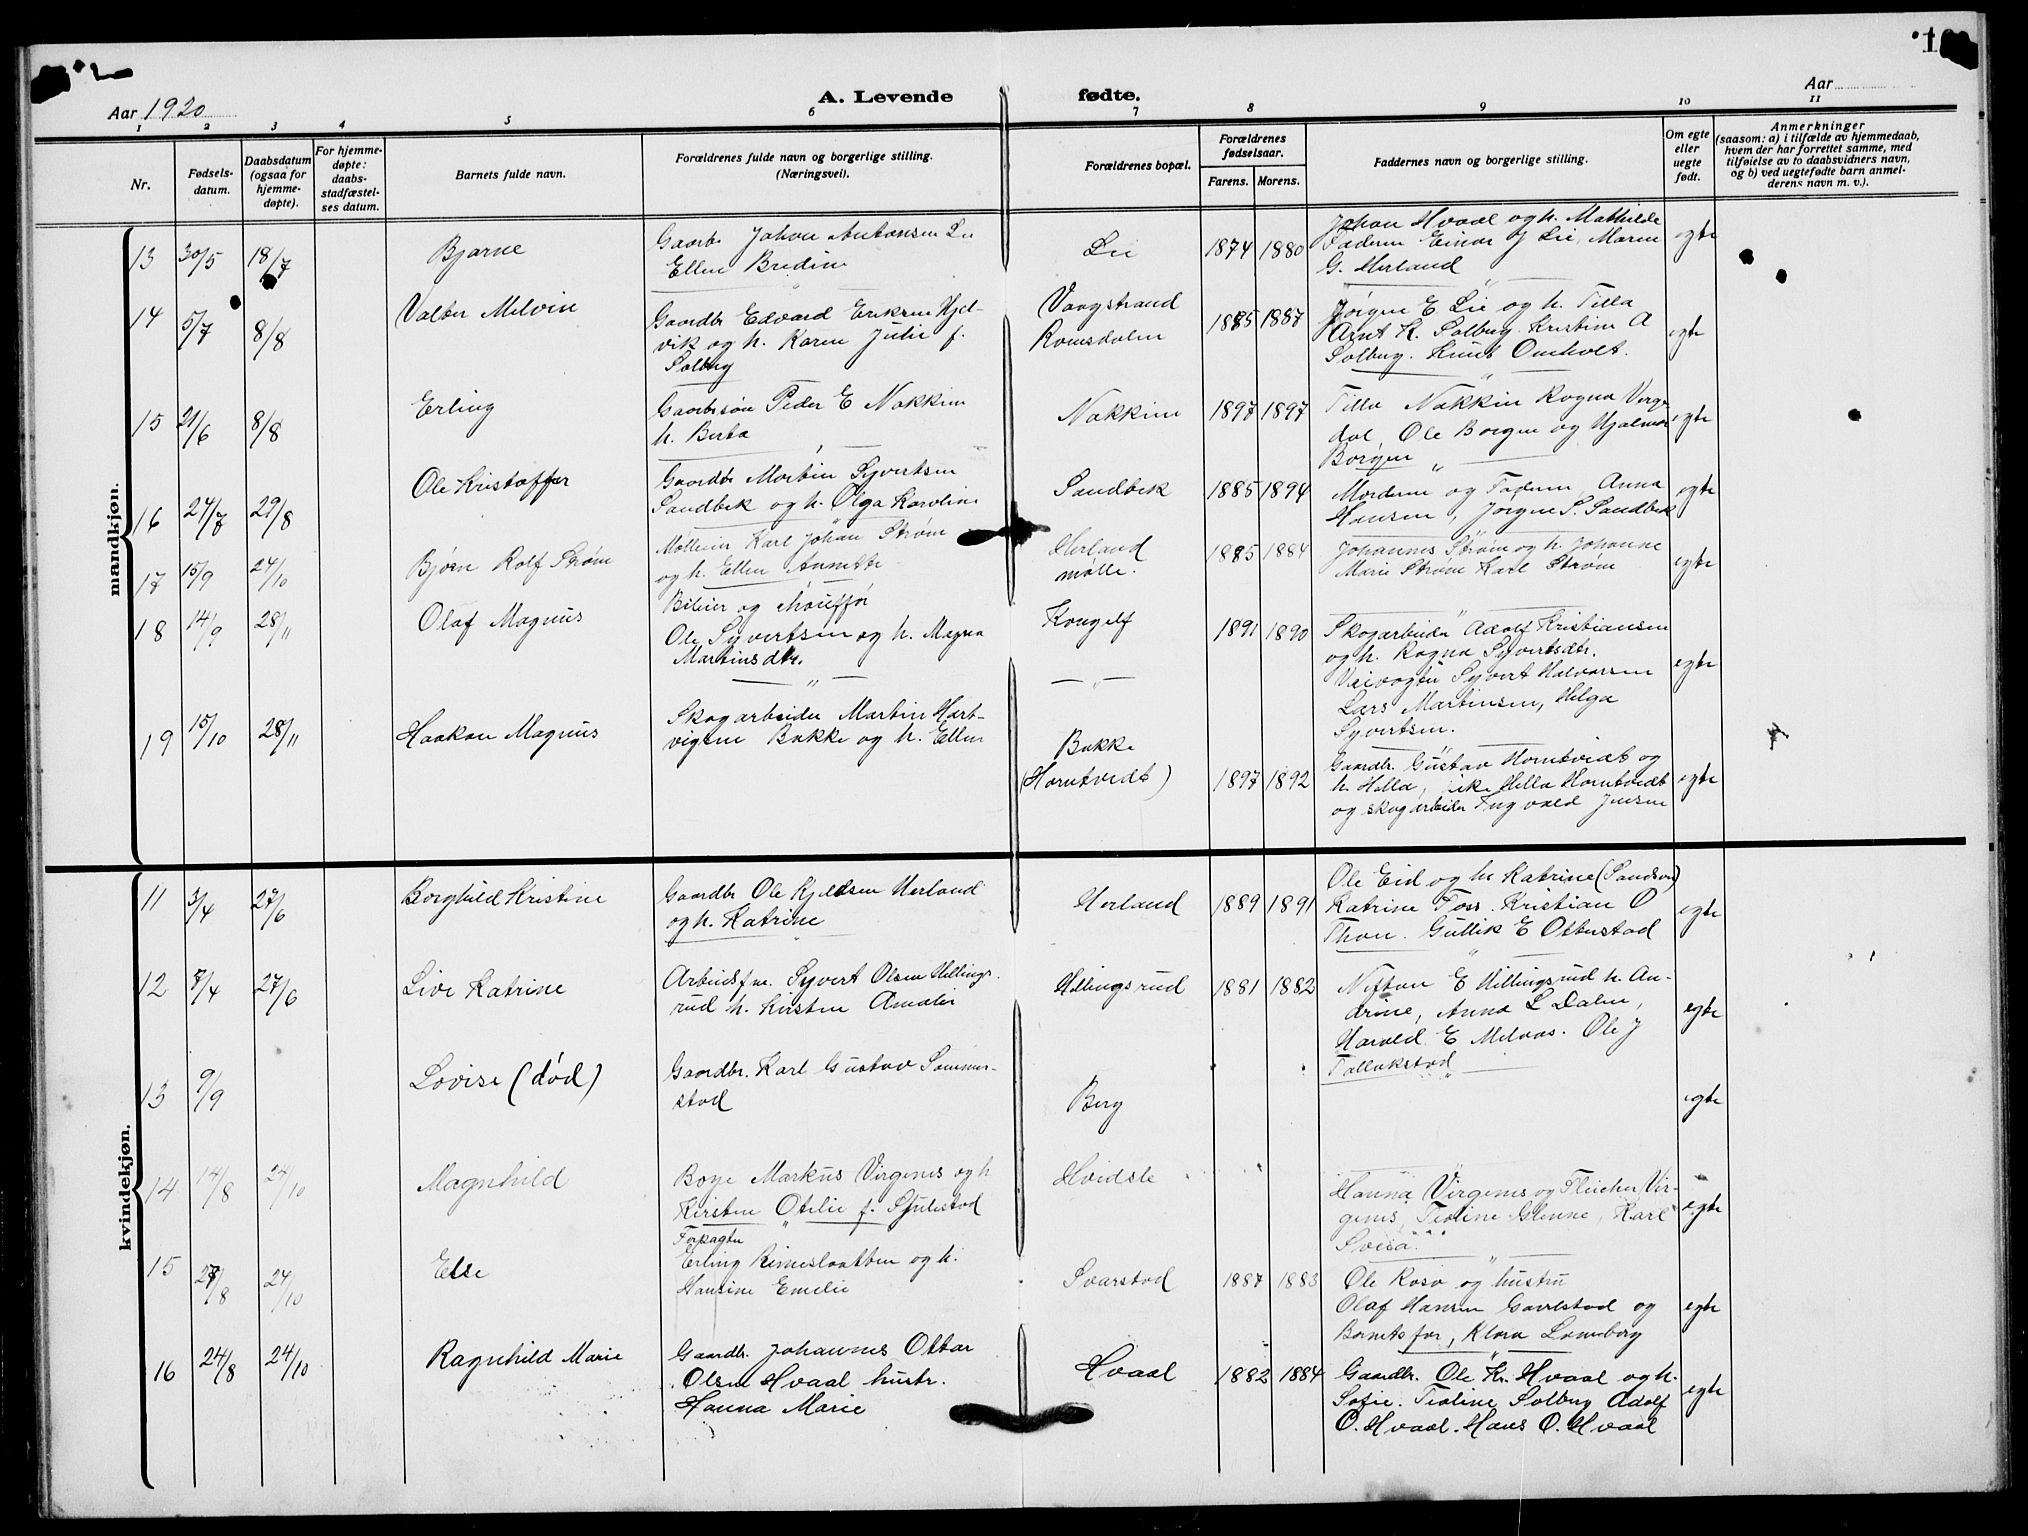 Aar 1920
A. Levende fødte.
Aar
1 2 3 4 5 6 7 8 9 10 11
Nr.
Fødsels-
datum.
Daabsdatum
(ogsaa for
hjemme-
døpte).
For hjemme-
døpte:
daabs-
stadfæstel-
ses datum.
Barnets fulde navn.
Forældrenes fulde navn og borgerlige stilling.
(Næringsvei).
Forældrenes bopæl.
Forældrenes
fødselsaar.
Farens. Morens.
Faddernes navn og borgerlige stilling.
Om egte
eller
uegte
født.
Anmerkninger
(saasom: a) i tilfælde av hjemmedaab,
hvem der har forrettet samme, med
tilføielse av to daabsvidners navn,
og b) ved uegtefødte barn anmel-
derens navn m. v.).
mandkjøn.
13 30/5 18/7 Bjarne
Gaardbr Johan Antonsen Lie
Ellen Bredine
Lie 1874 1880
Johan Hvaal og h. Mathilde
Faderen Einar J Lie, Maren
G. Herland
egte
14 5/7 8/8 Valter Melvin
Gaardbr Edvard Eriksen Hjel-
vik og h. Karen Julie f.
Solberg
Vaagstrand
Romsdalen
1885 1887
Jørgen E Lie og h. Tilla
Arnt K. Solberg. Kristine A
Solberg. Knut Omholt.
egte
15 21/6 8/8 Erling
Gaardbrsøn Peder E Nakkim
h. Berta
Nakkim 1897 1897
Tilla Nakkim Ragna Verge-
dal, Ole Borgen og Hjalmar
Borgen
egte
16 27/7 29/8 Ole Kristoffer
Gaardbr Martin Syvertsen
Sandbek og h. Olga Karoline
Sandbek 1885 1894
Moderen og Faderen Anna
Hansen, Jørgen S. Sandbek
egte
17 15/9 24/10 Bjørn Rolf Strøm
Møller Karl Johan Strøm
og h. Ellen Annette
Herland
mølle.
1885 1884
Johannes Strøm og h. Johanne
Marie Strøm Karl Strøm
egte
18 14/9 28/11 Olaf Magnus
Bileier og chauffør
Ole Syvertsen og h. Magna
Martinsdtr.
Kongelf 1891 1890
Skogarbeider Adolf Kristiansen
og h. Ragna Syvertsdtr.
Veivogter Syvert Halvorsen
Lars Martinsen, Helga
Syvertsen.
egte
19 15/10 28/11 Haakon Magnus
Skogarbeider Martin Hart-
vigsen Bakke og h. Ellen
Bakke
(Horntvedt)
1897 1892
Gaardbr. Gustav Horntvedt og
h. Hella, Hella Horntvedt
og skogarbeider Ingvald Jensen
egte
kvindekjøn.
11 3/4 27/6 Borghild Kristine
Gaardbr Ole Kjeldsen Herland
og h. Katrine
Herland 1889 1891
Ole Eid og h. Katrine (Sandson)
Katrine Foss. Kristian O
Thon. Gullik E Otterstad
egte
12 7/4 27/6 Live Katrine
Arbeidsfm. Syvert Olsen Hillings-
rud h. Kirsten Amalie
Hillingsrud 1881 1882
E Hillingsrud h. An-
drine, Anna L Dalen,
Harald E Melaas. Ole J
Tallakstad
egte
13 9/9 Lovise (død)
Gaardbr. Karl Gustav Sommer-
stad
Berg
egte
14 14/8 24/10 Magnhild
Boye Markus Virgenes og h
Kirsten Otilie f. Spillestad
Hvidste
Hanna Virgenes og Fleicher Vir-
genes, Teoline Glenne, Karl
egte
15 27/8 24/10 Else
Forpagter
Erling Rimeslaatten og h.
Hansine Emelie
Svarstad 1887 1883
Ole Rosø og hustru
Olaf Hansen Gavelstad og
Barnets far, Klara Lomeberg
egte
16 24/8 24/10 Ragnhild Marie
Gaardbr. Johannes Ottar
Olsen Hvaal hustr.
Hanna Marie
Hvaal 1882 1884
Gaardbr. Ole Kr. Hvaal og h.
Sofie. Teoline Solberg Adolf
O. Hvaal. Hans O. Hvaal
egte